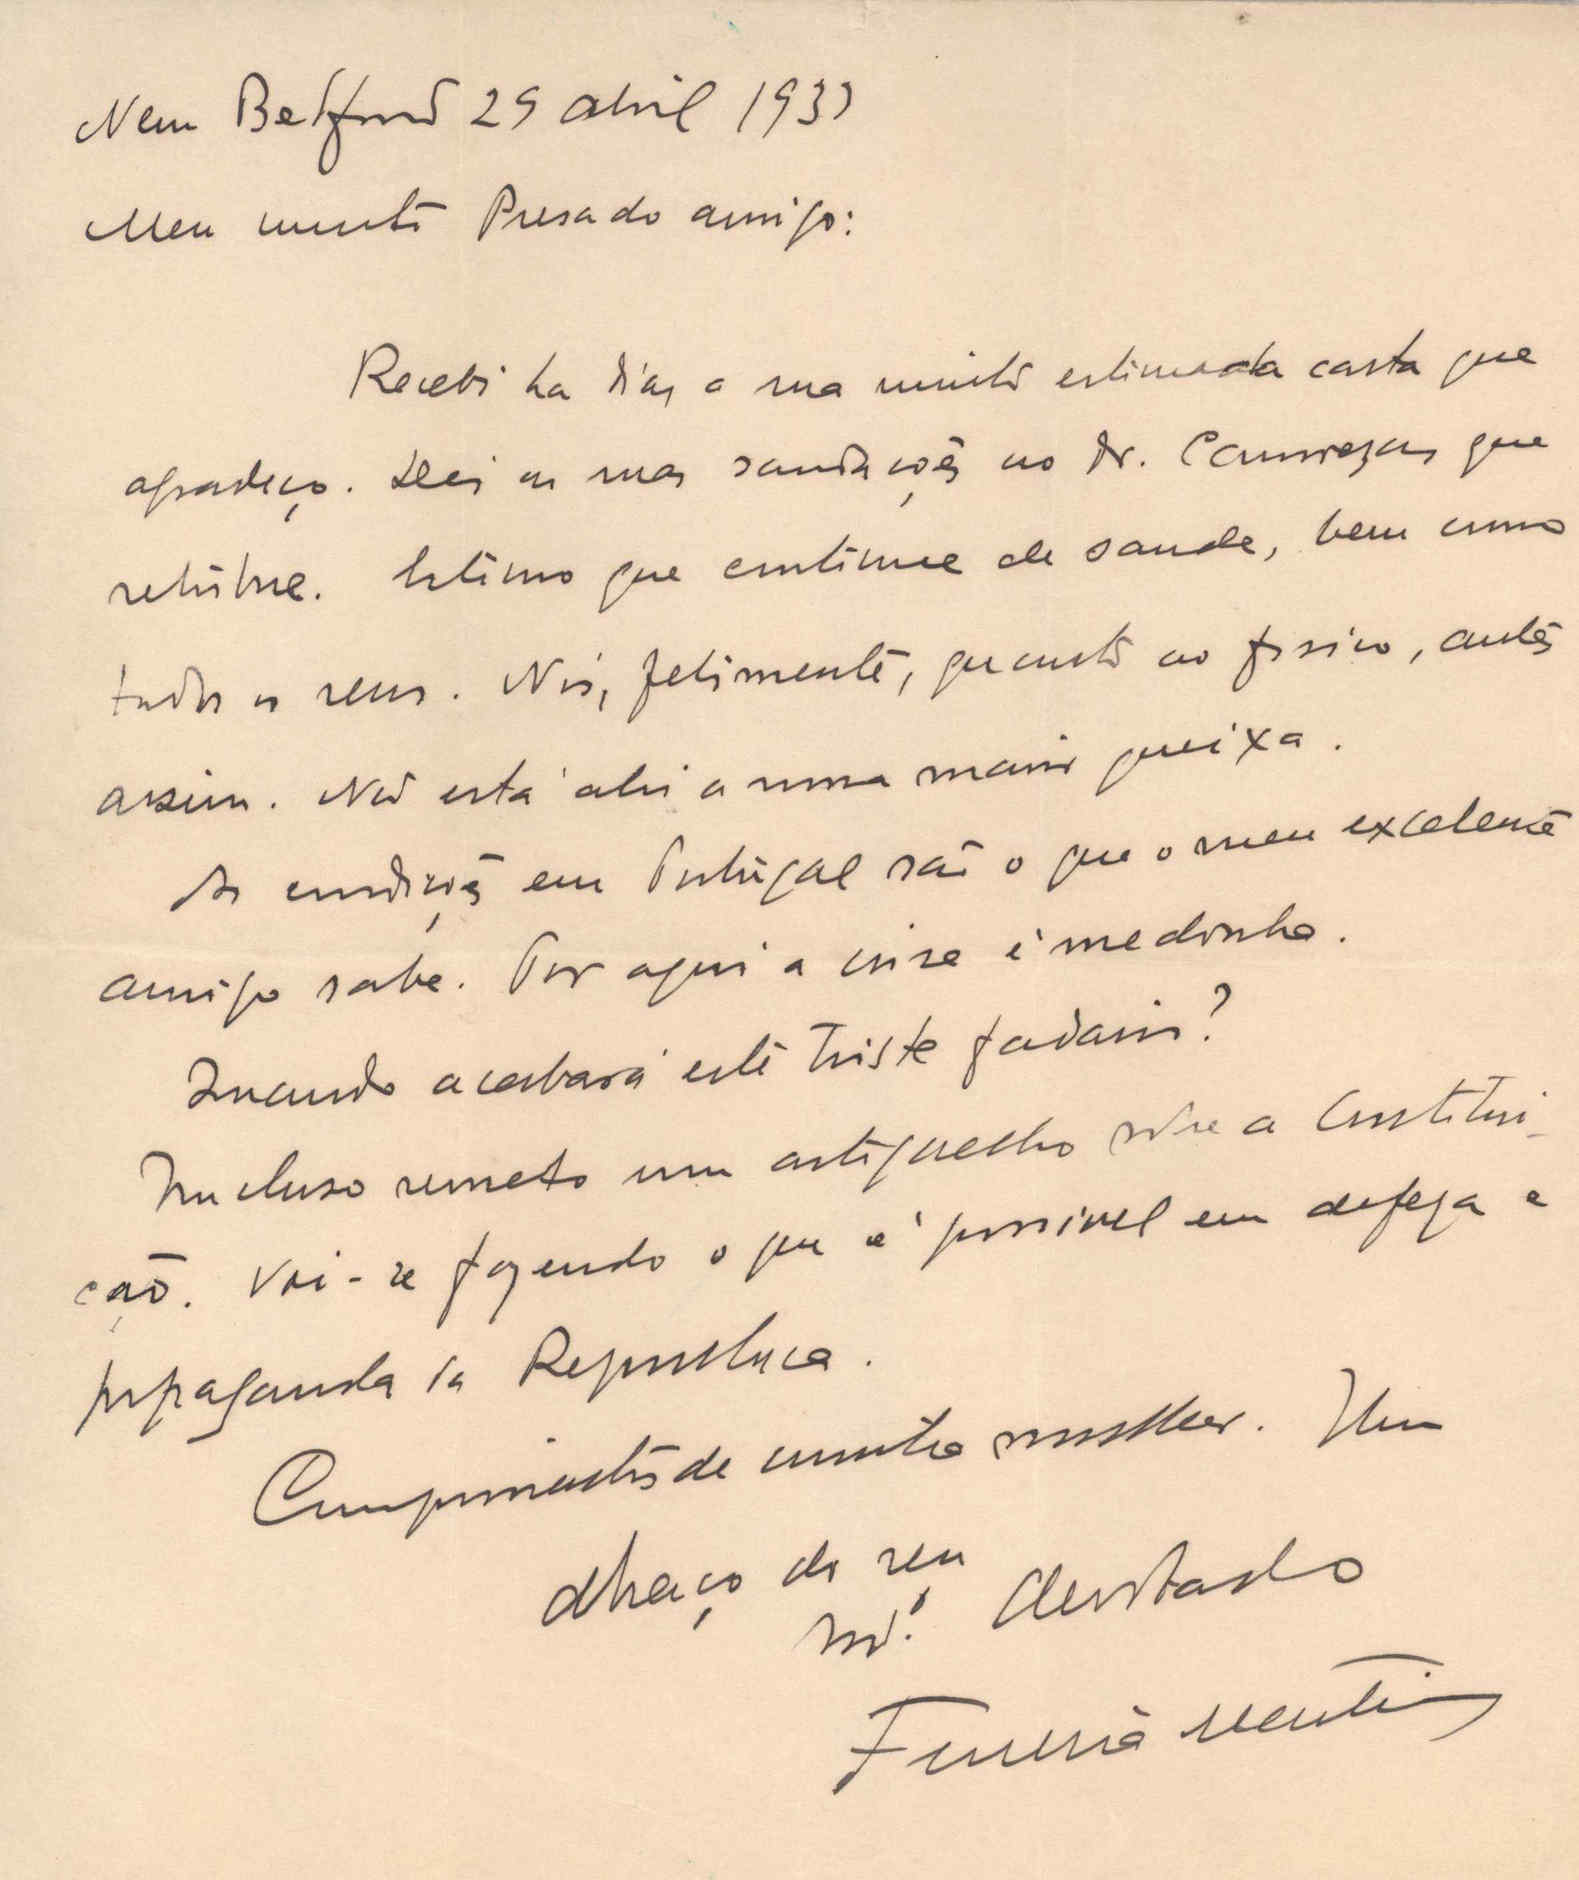 New Bedford 29 abril 1933
Meu muito Presado amigo:
Recebi ha dias a sua muito estimada carta que
agradeço. Dei as suas saudações ao Dr. Camrezas que
retribue. Estimo que continue de saude, bem como
todos os seus. Nós, felismente, quanto ao fisico, antes
assim. Não está ahi a nossa maior queixa.
As condições em Portugal são o que o meu excelente
amigo sabe. Por aqui a crise é medonha.
Quando acabará este triste fadario?
Incluso remeto um artiguelho sobre a Constitui-
ção. Vai-se fazendo o que é possivel em defeza e
propaganda da Republica.
Cumprimentos de minha mulher. Um
abraço do seu
mto. dedicado
Ferreira Martins